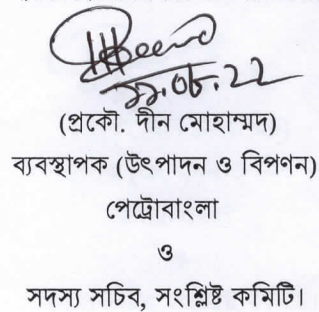 (প্রকৌ. দীন মোহাম্মদ)
ব্যবস্থাপক (উৎপাদন ও বিপণন)
পেট্রোবাংলা
ও
সদস্য সচিব, সংশ্লিষ্ট কমিটি।